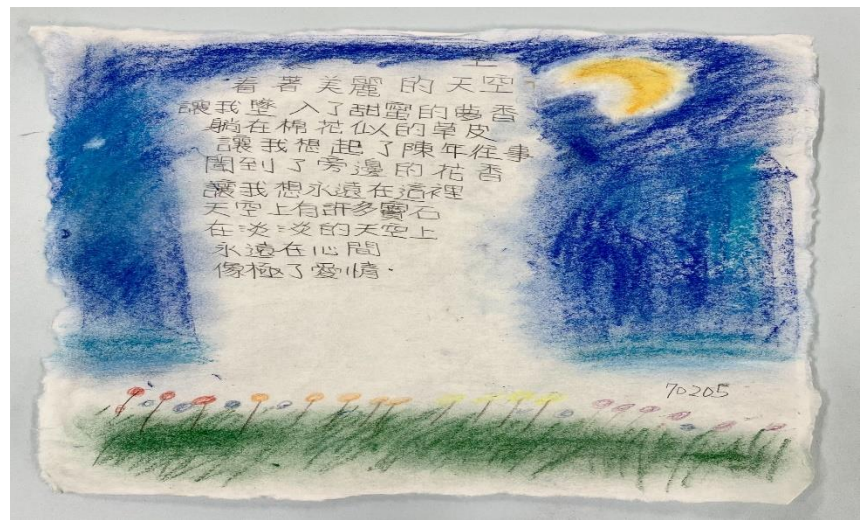 空
看著美麗的天空
讓我墜入了甜蜜的夢香
躺在棉花似的草皮
讓我想起了陳年往事
聞到了旁邊的花香
讓我想永遠在這裡
天空上有許多寶石
在淡淡的天空上
永遠在心間
像極了愛情.
70205